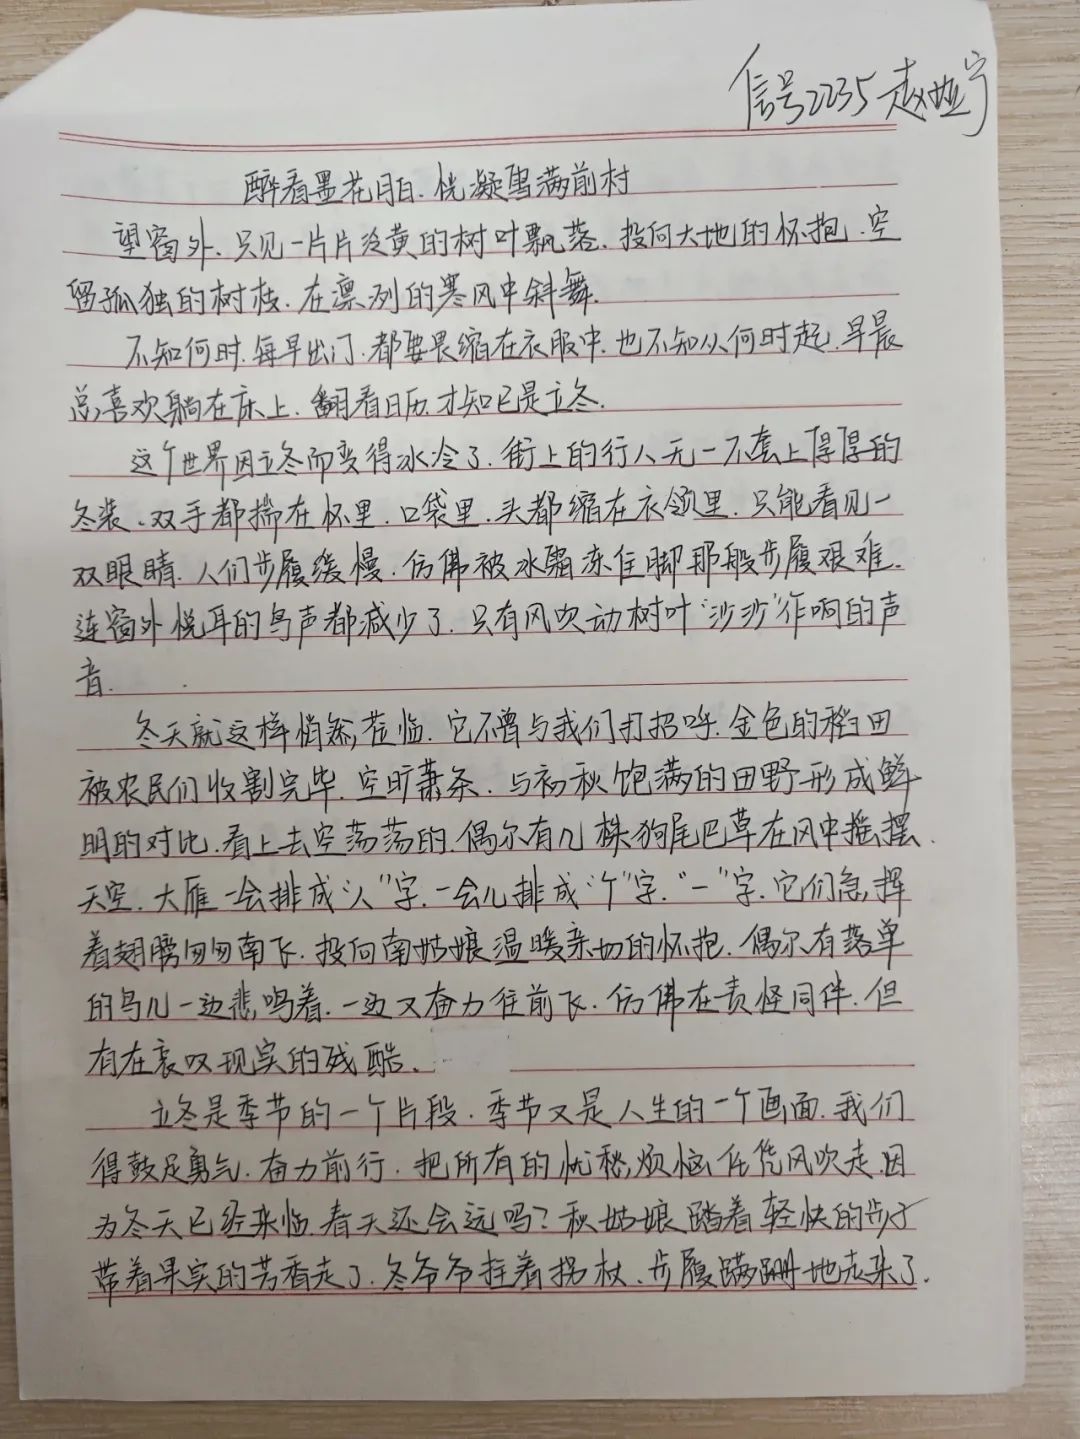 信号2235 赵娅宁
醉看墨花月白.恍凝雪满前村
望窗外.只见一片片泛黄的树叶飘落.投向大地的怀抱.空
留孤独的树枝.在凛冽的寒风中斜舞.
不知何时.每早出门.都要畏缩在衣服中.也不知从何时起.早晨
总喜欢躺在床上.翻看日历.才知已是立冬.
这个世界因立冬而变得冰冷了.街上的行人无一不套上厚厚的
冬装.双手都揣在怀里.口袋里.头都缩在衣领里.只能看见一
双眼睛.人们步履缓慢.仿佛被冰霜冻住脚那般步履艰难.
连窗外悦耳的鸟声都减少了.只有风吹动树叶“沙沙”作响的声
音.
冬天就这样悄然莅临.它不曾与我们打招呼.金色的稻田
被农民们收割完毕.空旷萧条.与初秋饱满的田野形成鲜
明的对比.看上去空荡荡的.偶尔有几株狗尾巴草在风中摇摆.
天空.大雁一会排成“人”字.一会儿排成“个”字.“一”字.它们急挥
着翅膀匆匆南飞.投向南姑娘温暖亲切的怀抱.偶尔有落单
的鸟儿一边悲鸣着.一边又奋力往前飞.仿佛在责怪同伴.但
有在哀叹现实的残酷.
立冬是季节的一个片段.季节又是人生的一个画面.我们
得鼓足勇气.奋力前行.把所有的忧愁,烦恼任凭风吹走.因
为冬天已经来临.春天还会远吗?秋姑娘踏着轻快的步子
带着果实的芳香走了.冬爷爷拄着拐杖.步履蹒跚地走来了.